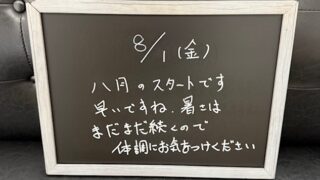 8/1(金)
八月のスタートです
早いですね。暑さは
まだまだ続くので
体調にお気をつけください